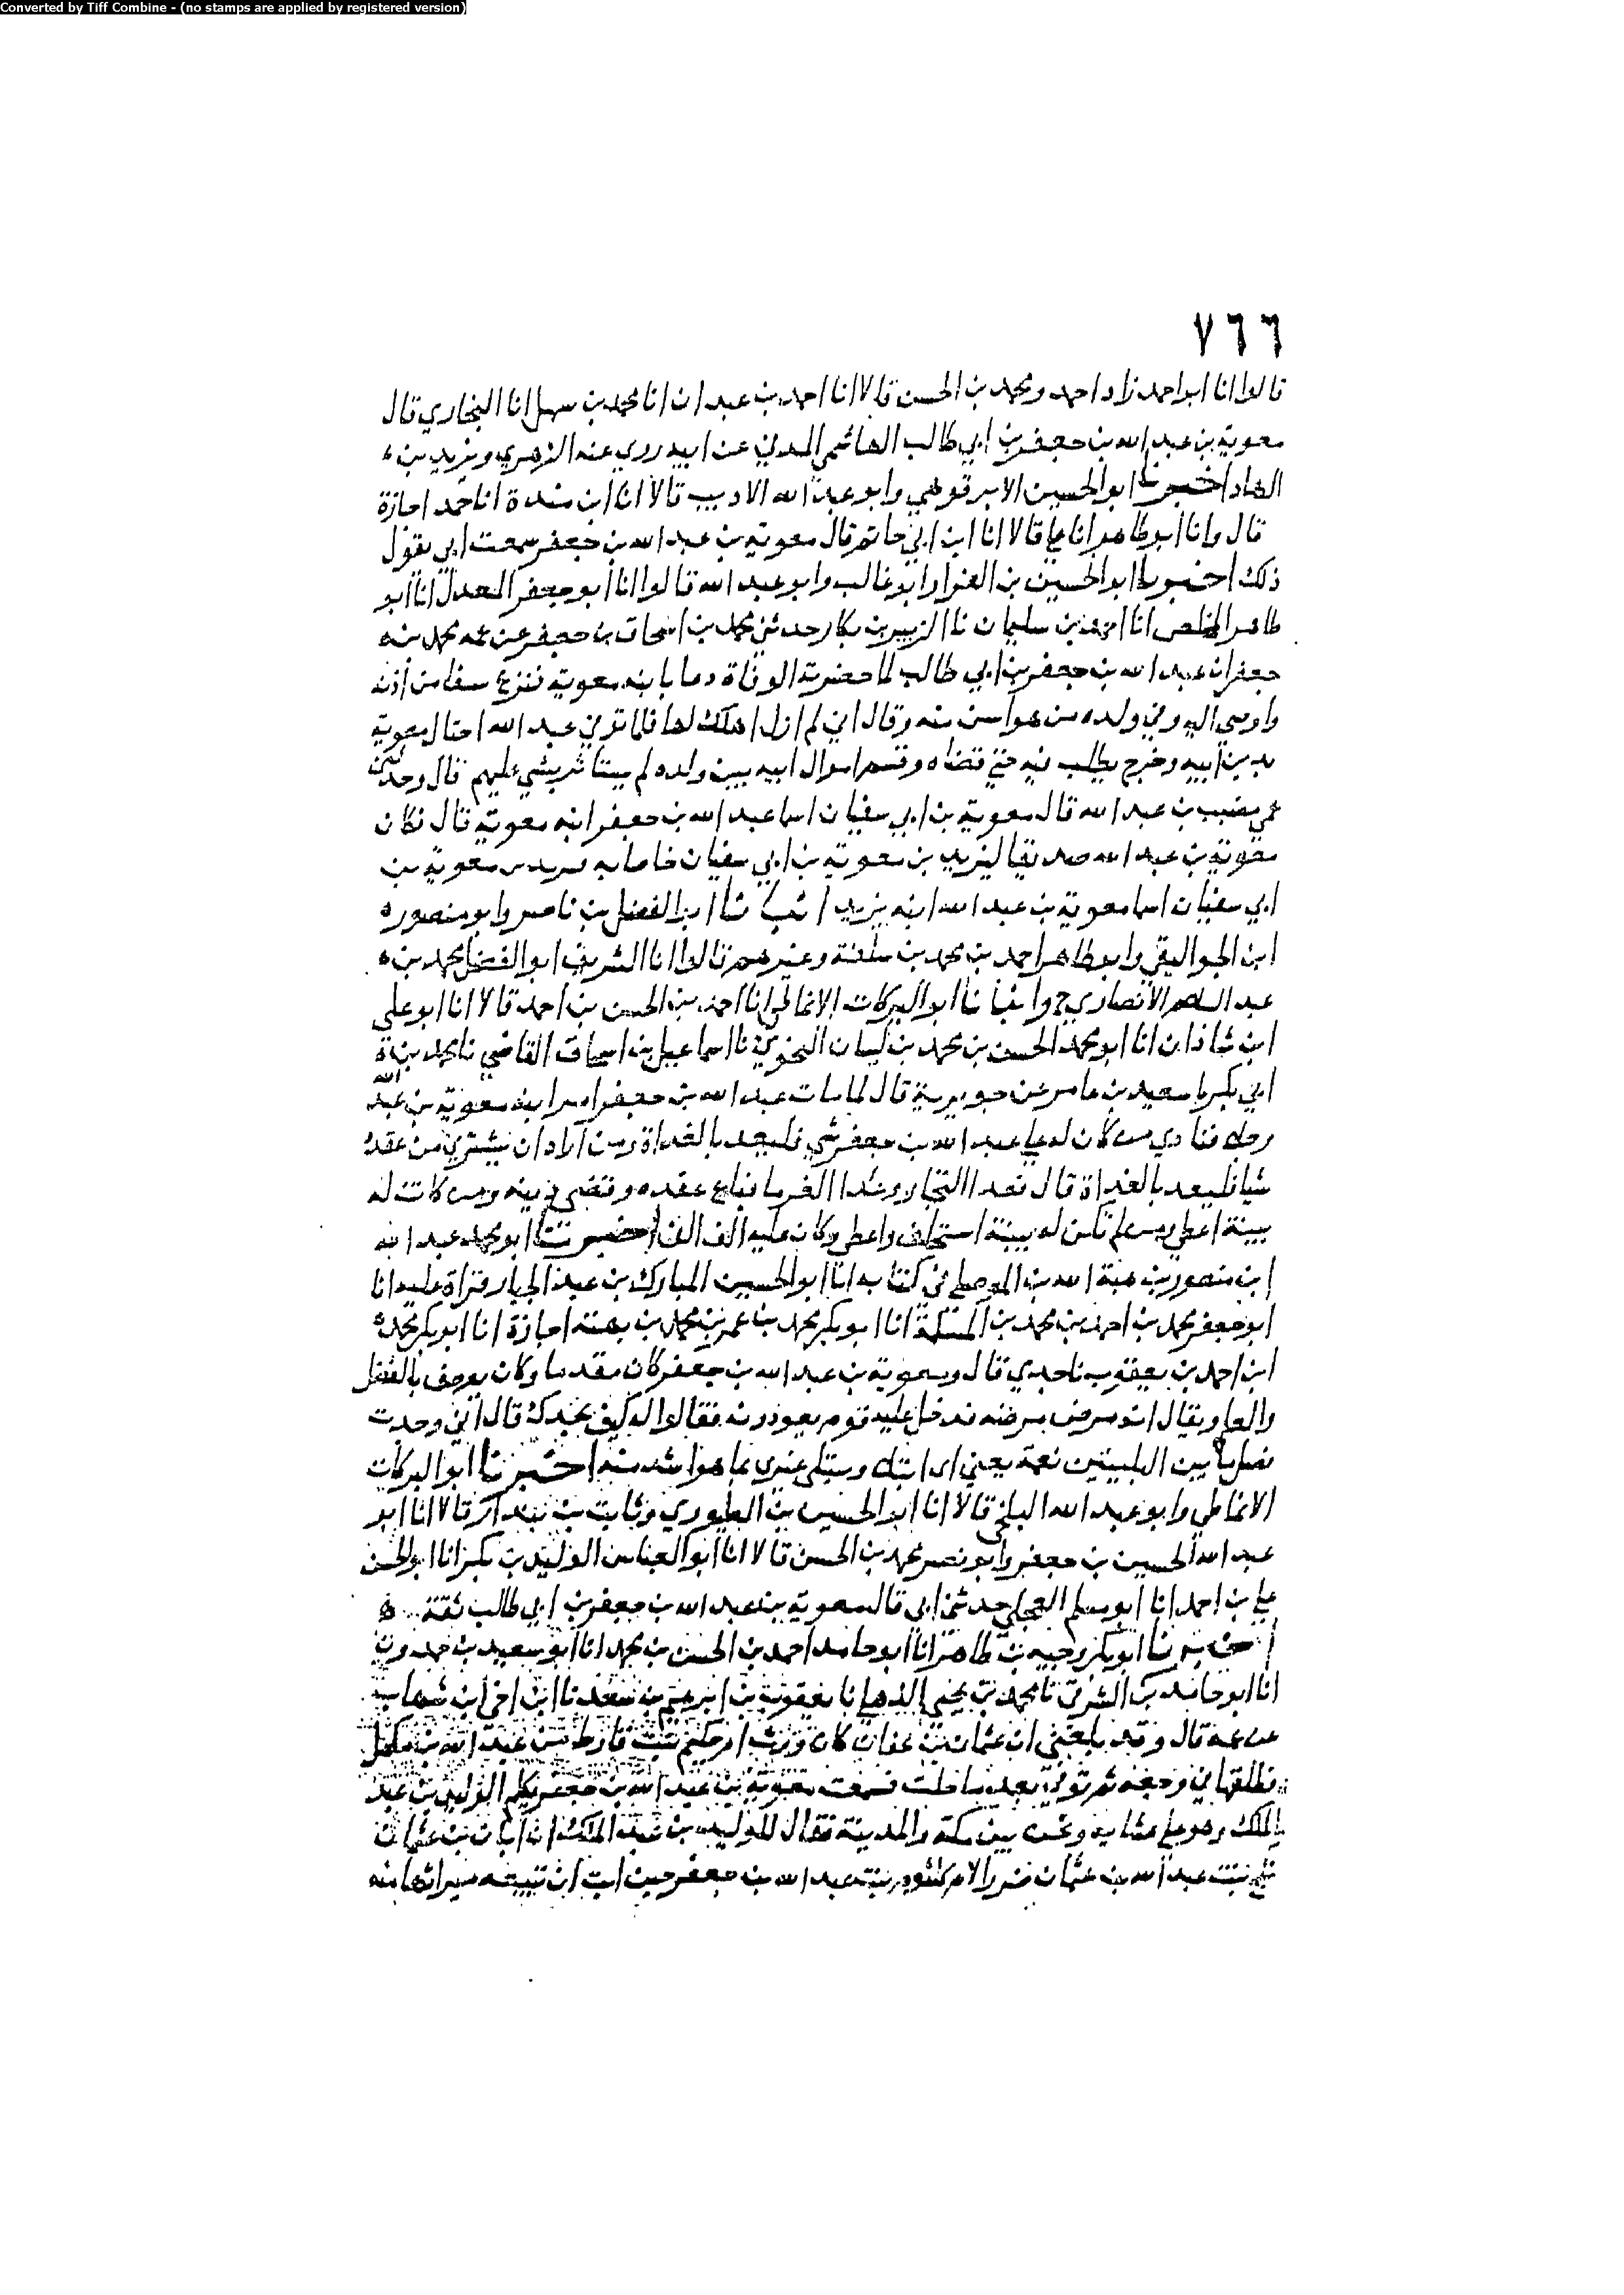 Converted by Tiff Combine - (no stamps are applied by registered version)
٧٦٦
قالوا انا ابو احمد زاد احمد ومحمد بن الحسن قالا انا احمد بن عبدان انا محمد بن سهل انا البخاري قال
معوية بن عبد الله بن جعفر بن ابي طالب الهاشمي المدني عن ابيه روي عنه الزهري ويزيد بن
الهاد اخبرنا ابو الحسين الابرقوهي وابو عبد الله الاديب قالا انا ابن مندة انا حمد اجازة
قال وانا ابو طاهر انا علي قالا انا ابن ابي حاتم قال معوية بن عبد الله بن جعفر سمعت ابي يقول
ذلك اخبرنا ابو الحسين بن الفرا وابو غالب وابو عبد الله قالوا انا ابو جعفر المعدل انا ابو
طاهر المخلص انا احمد بن سليمان نا الزبير بن بكار حدثني محمد بن اسحاق بن جعفر عن عمه محمد بن
جعفر ان عبد الله بن جعفر بن ابي طالب لما حضرته الوفاة دعا بابنه معوية فنزع سفا من اذنه
واوصى اليه وفي ولده من هو اسن منه وقال اني لم ازل اهلك لها فلما توفي عبد الله احتال معوية
بدين ابيه وخرج يطلب فيه حتى قضاه وقسم اموال ابيه بين ولده لم يستاثر بشي عليهم قال وحدثني
عمي مصعب بن عبد الله قال معوية بن ابي سفيان اسما عبد الله بن جعفر ابنه معوية قال فكان
معوية بن عبد الله صديقا ليزيد بن معوية بن ابي سفيان خاصا به يزيد بن معوية بن
ابي سفيان اسما معوية بن عبد الله ابنه يزيد انبانا ابو الفضل بن ناصر وابو منصور
ابن الجواليقي وابو طاهر احمد بن محمد بن سلفة وغيرهم قالوا انا الشريف ابو الفضل محمد بن
عبد السلام الانصاري ح وانبانا ابو البركات الانماطي انا احمد بن الحسن بن احمد قالا انا ابو علي
ابن شاذان انا ابو محمد الحسن بن محمد بن كيسان النحوي نا اسماعيل بن اسحاق القاضي نا محمد بن
ابي بكر نا سعيد بن عامر عن جويرية قال لما مات عبد الله بن جعفر امر ابنه معوية بن عبد الله
رجلا فنادي من كان له علي عبد الله بن جعفر شي فليعد بالغداة ومن اراد ان يشتري من عقده
شيا فليعد بالغداة قال فغدا التجار وغدا الغرما فباع عقده وقضى دينه ومن كانت له
بينة اعطي ومن لم تكن له بينة استحلف واعطي وكان عليه الف الف اخبرنا ابو محمد عبد الله
ابن منصور بن هبة الله بن الموصلي في كتابه انا ابو الحسين المبارك بن عبد الجبار قراة عليه انا
ابو جعفر محمد بن احمد بن محمد بن المسلمة انا ابو بكر محمد بن عمر بن محمد بن بهتة اجازة انا ابو بكر محمد
ابن احمد بن يعقوب نا جدي قال ومعوية بن عبد الله بن جعفر كان مقدما وكان يوصف بالفضل
والعلم ويقال انه مرض مرضه فدخل عليه قوم يعودونه فقالوا له كيف نجدك قال اني وجدت
فضل ما بين البليتين نعمة يعني اي ابتلى ويبتلى غيري بما هو اشد منه اخبرنا ابو البركات
الانماطي وابو عبد الله البلخي قالا انا ابو الحسين بن الطيوري وثابت بن بندار قالا انا ابو
عبد الله الحسين بن جعفر وابو نصر محمد بن الحسن قالا انا ابو العباس الوليد بن بكر انا ابو الحسن
علي بن احمد انا ابو مسلم العجلي حدثني ابي قال معوية بن عبد الله بن جعفر بن ابي طالب ثقة
اخبرنا ابو بكر وجيه بن طاهر انا ابو حامد احمد بن الحسن بن محمد انا ابو سعيد بن حمدون
انا ابو حامد بن الشرقي نا محمد بن يحيى الذهلي نا يعقوب بن ابرهيم بن سعد نا ابن اخي ابن شهاب
عن عمه قال وقد بلغني ان عثمان بن عفان كان ورث ام حكيم بنت قارظ من عبد الله بن مكمل
فطلقها في وجعه ثم توفي بعد ما حلت فسمعت معوية بن عبد الله بن جعفر يكلم الوليد بن عبد
الملك وهو علي عشايه ونحن بين مكة والمدينة فقال للوليد بن عبد الملك ان ابان بن عثمان
نكح بنت عبد الله بن عثمان ضررا لام كلثوم بنت عبد الله بن جعفر حين ابت ان تبيعه ميراثها منه